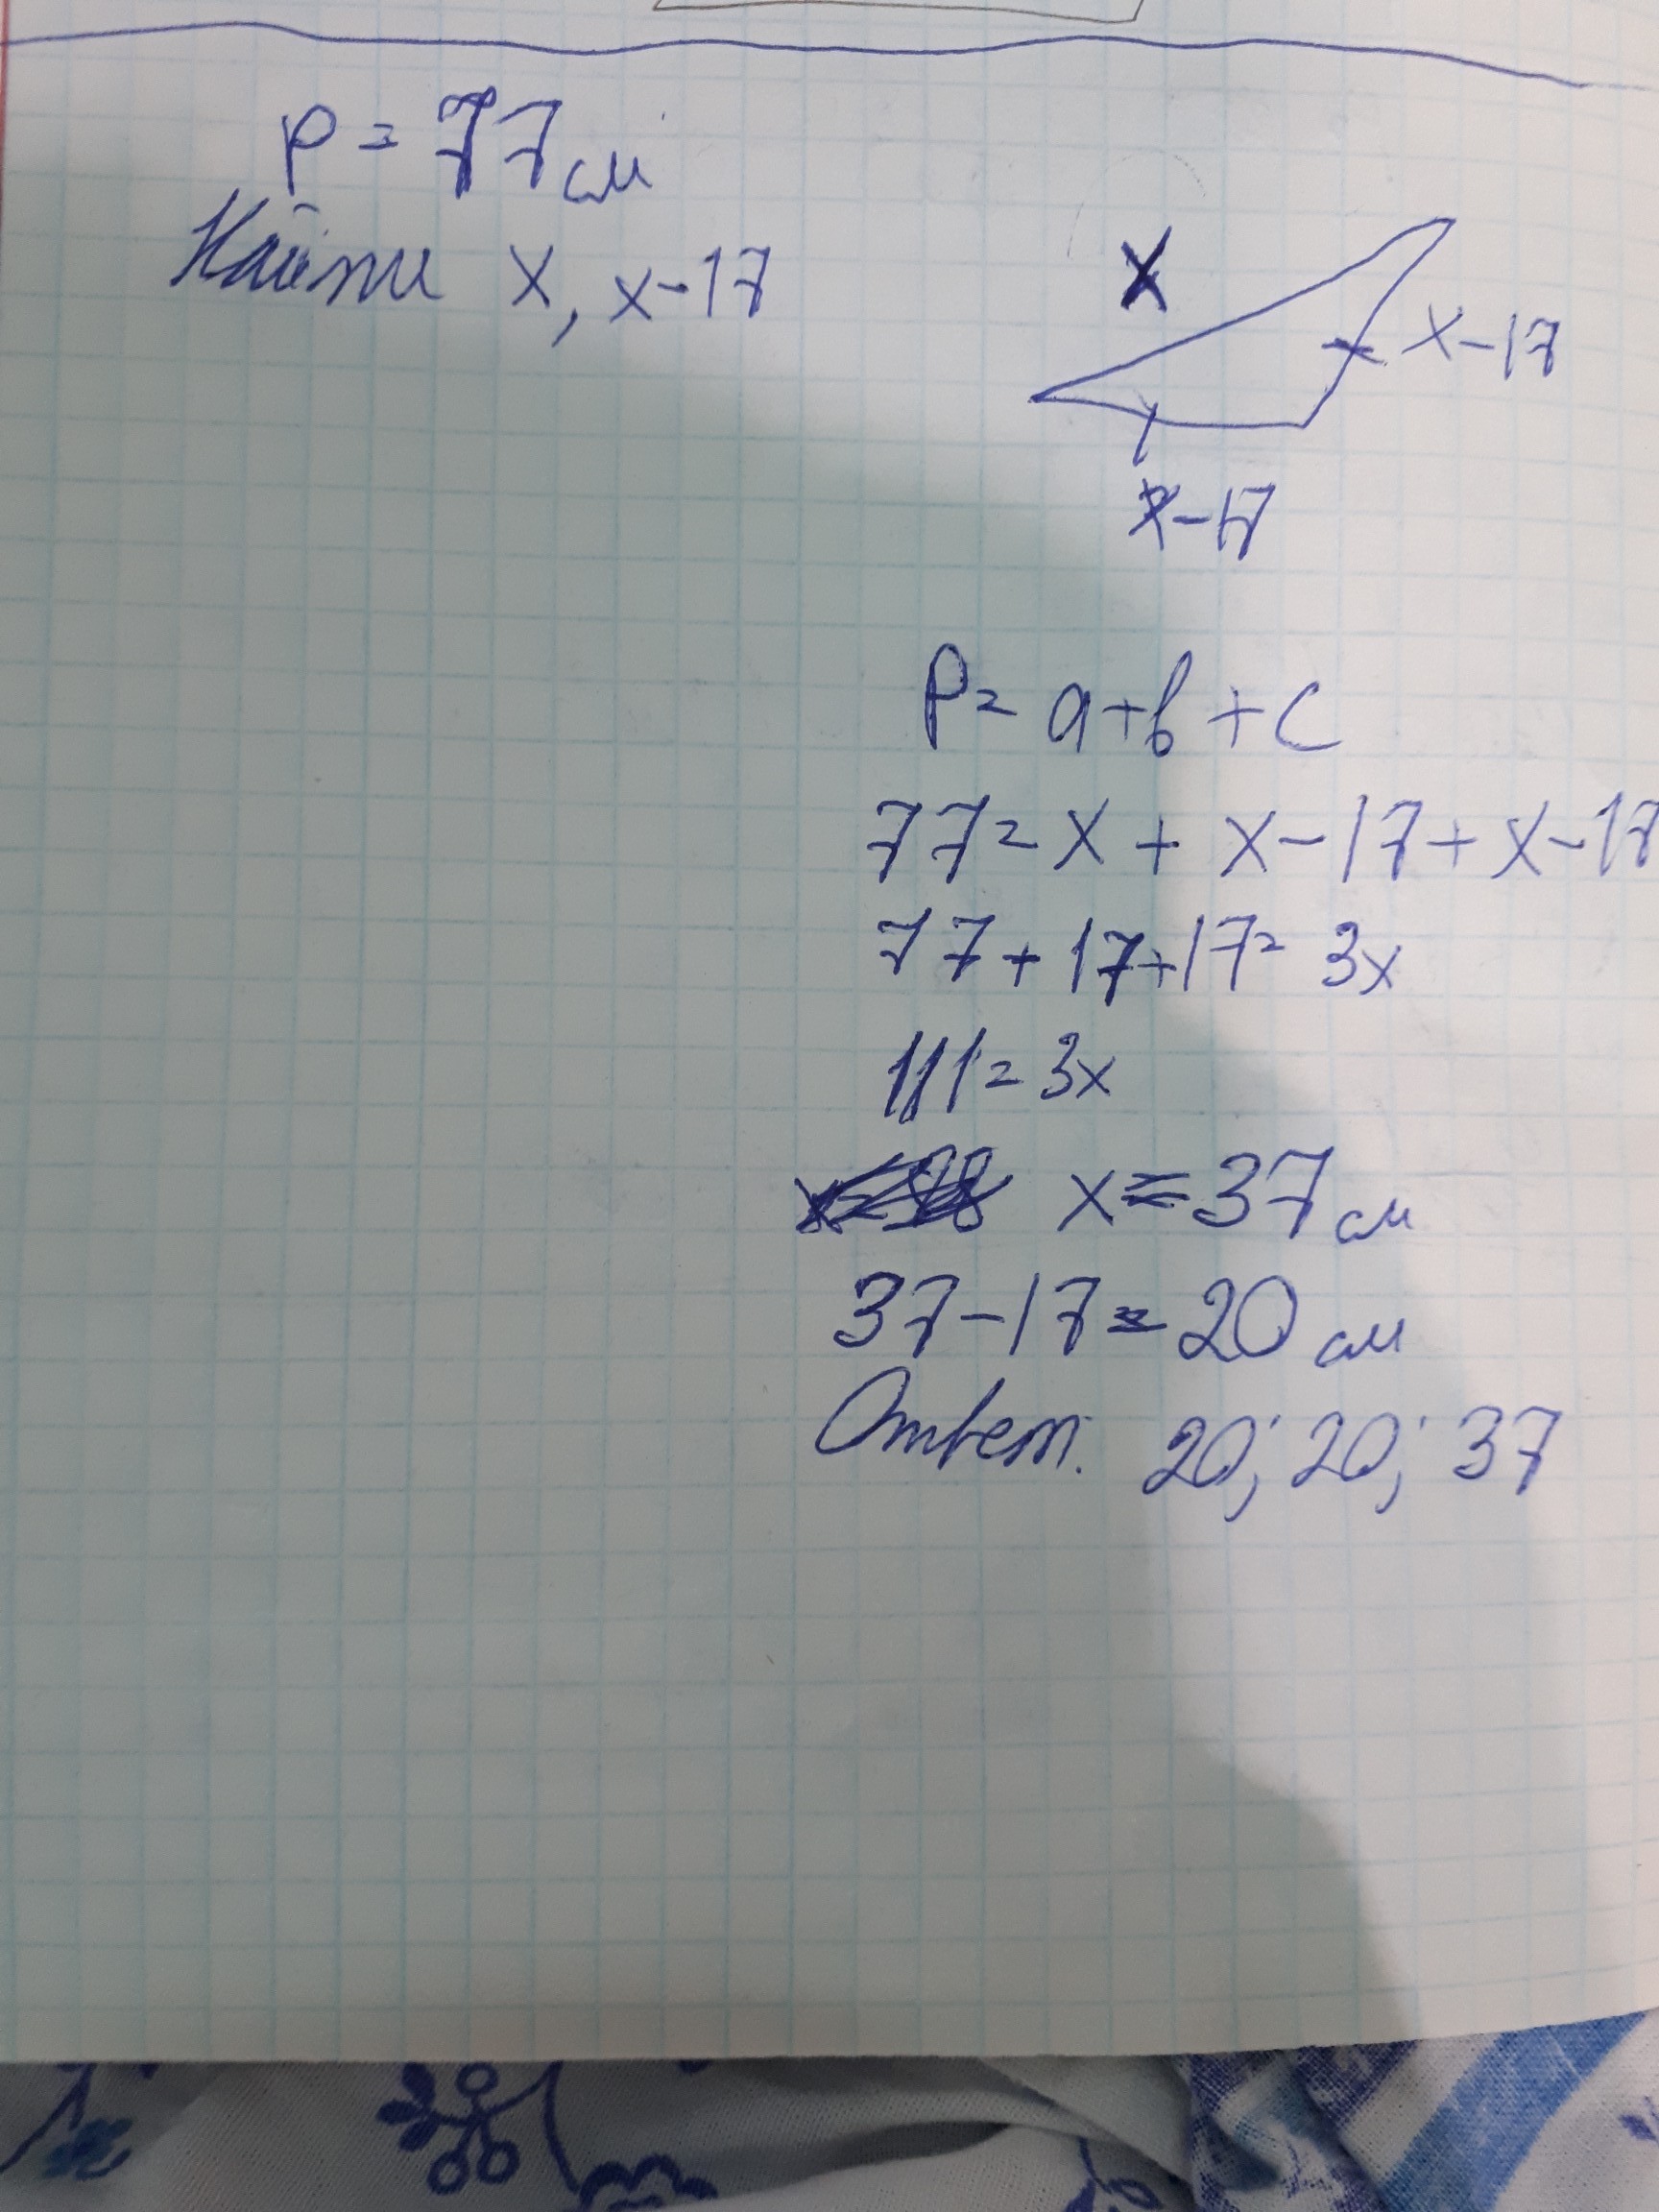 P = 77см
Найти x, x-17
x
x-17
x-17
P = a+b+c
77 = x + x-17 + x-17
77 + 17 + 17 = 3x
111 = 3x
x = 37 см
37-17 = 20 см
Ответ: 20; 20; 37